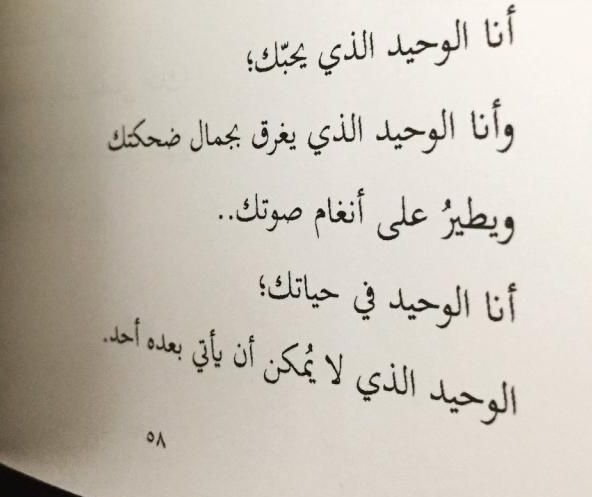 أنا الوحيد الذي يحبّك؛
وأنا الوحيد الذي يغرق بجمال ضحكتك
ويطيرُ على أنغام صوتك..
أنا الوحيد في حياتك؛
الوحيد الذي لا يُمكن أن يأتي بعده أحد.
٥٨